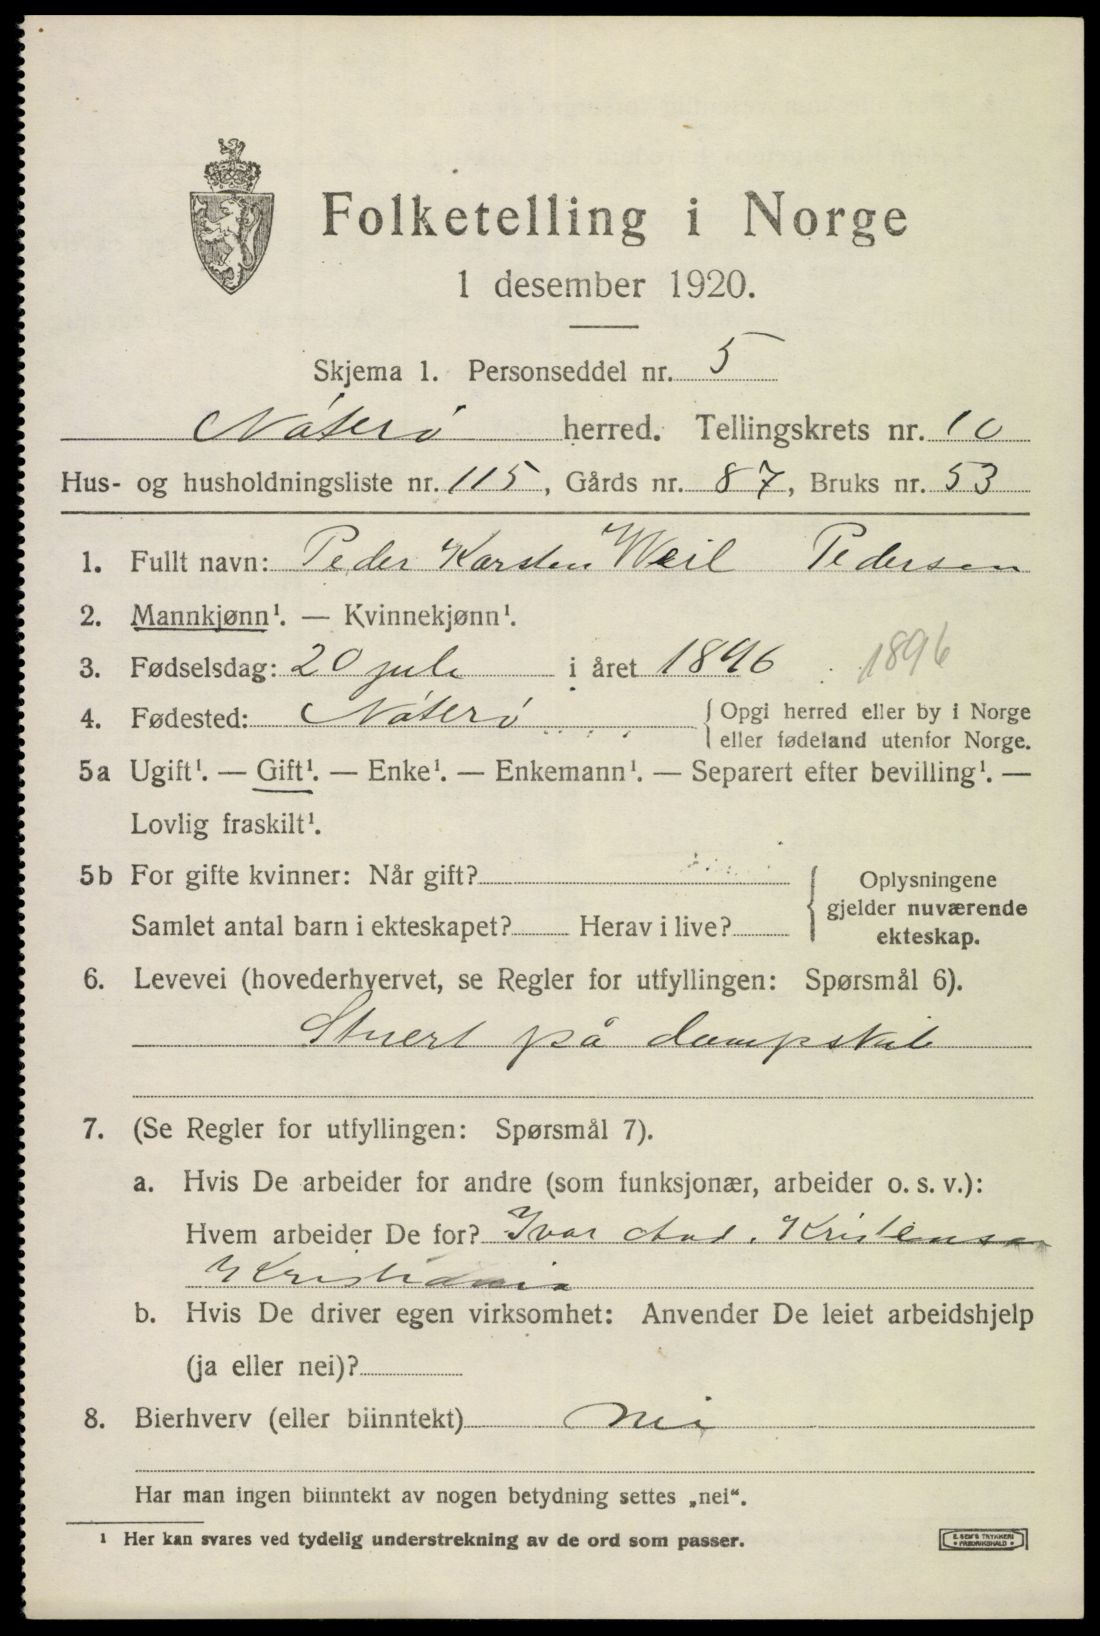 Folketelling i Norge
1 desember 1920.
Skjema 1. Personseddel nr. 5
Nøterø herred. Tellingskrets nr. 10
Hus- og husholdningsliste nr. 115, Gårds nr. 87, Bruks nr. 53
1. Fullt navn: Peder Karsten Weil Pedersen
2. Mannkjønn¹. — Kvinnekjønn¹.
3. Fødselsdag: 20 juli i året 1896 1896
4. Fødested: Nøterø { Opgi herred eller by i Norge
eller fødeland utenfor Norge.
5a Ugift¹. — Gift¹. — Enke¹. — Enkemann¹. — Separert efter bevilling¹. —
Lovlig fraskilt¹.
5b For gifte kvinner: Når gift?
Samlet antal barn i ekteskapet? Herav i live?
{ Oplysningene
gjelder nuværende
ekteskap.
6. Levevei (hovederhvervet, se Regler for utfyllingen: Spørsmål 6).
Stuert på dampskib
7. (Se Regler for utfyllingen: Spørsmål 7).
a. Hvis De arbeider for andre (som funksjonær, arbeider o. s. v.):
Hvem arbeider De for? Ivar And. Kristensen
Kristiania
b. Hvis De driver egen virksomhet: Anvender De leiet arbeidshjelp
(ja eller nei)?
8. Bierhverv (eller biinntekt) nei
Har man ingen biinntekt av nogen betydning settes „nei“.
¹ Her kan svares ved tydelig understrekning av de ord som passer.
E. SEM'S TRYKKERI
• FREDRIKSHALD •